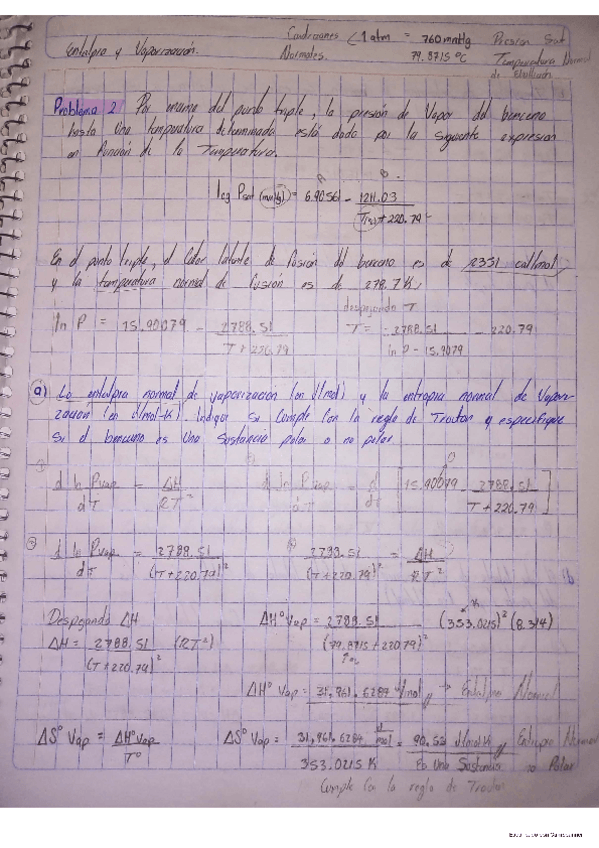 Condiciones < 1 atm = 760 mmHg Presion Sat
Entalpia y Vaporización. Normales. 79.8715 °C Temperatura Normal
de Ebullición
Problema 2 Por encima del punto triple, la presión de Vapor del benceno
hasta Una temperatura determinada está dada por la siguiente expresión
en función de la Temperatura.
A B
log Psat (mmHg) = 6.90561 - 1211.03 / T(°C) + 220.79
En el punto triple, el Calor latente de fusión del benceno es de 2351 cal/mol,
y la temperatura normal de fusión es de 278.7 K,
despejando T
ln P = 15.90079 - 2788.51 / T + 220.79 T = - 2788.51 / ln P - 15.9079 - 220.79
a) La entalpia normal de vaporización (en J/mol) y la entropia normal de Vapori-
zación (en J/mol·K). Indique si Cumple Con la regla de Trouton y especifique
Si el benceno es Una Sustancia polar o no polar.
d ln Pvap / dT = ΔH / RT² d ln Pvap / dT = d / dT [15.90079 - 2788.51 / T + 220.79]
d ln Pvap / dT = 2788.51 / (T+220.79)² 2788.51 / (T+220.79)² = ΔH / RT²
Despejando ΔH ΔH° vap = 2788.51 / (79.8715 + 220.79)² (353.0215)² (8.314)
K
ΔH = 2788.51 / (T+220.79)² (RT²)
ΔH° Vap = 31,961.6287 J/mol → Entalpia Normal
ΔS° Vap = ΔH° vap / T° ΔS° Vap = 31,961.6287 J/mol / 353.0215 K = 90.53 J/mol·K Entropia Normal
Es Una Sustancia no Polar
Cumple Con la regla de Trouton